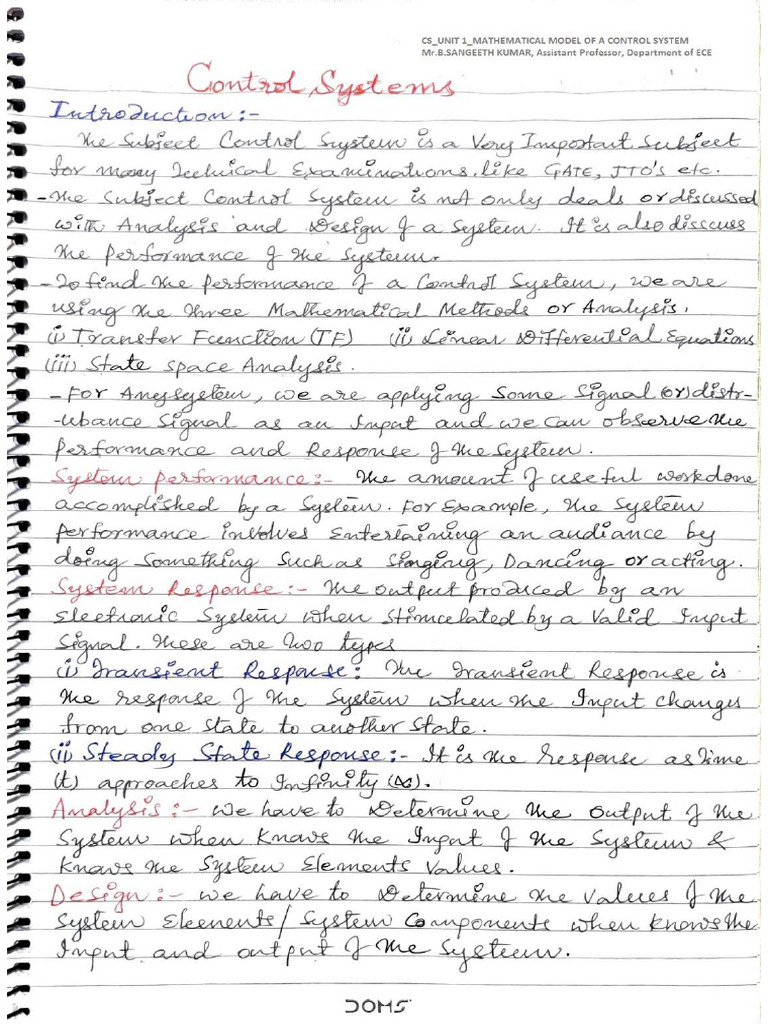 CS_UNIT 1_MATHEMATICAL MODEL OF A CONTROL SYSTEM
Mr.B.SANGEETH KUMAR, Assistant Professor, Department of ECE
Control Systems
Introduction:-
The Subject Control System is a Very Important Subject
for many Technical Examinations like GATE, JTO's etc.
- The Subject Control System is not only deals or discussed
with Analysis and Design of a System. It is also disscuss
the performance of the System.
- To find the performance of a Control System, we are
using the three Mathematical Methods or Analysis.
(i) Transfer Function (TF) (ii) Linear Differential Equations
(iii) State space Analysis.
- For Any system, we are applying Some Signal (or) distr-
-ubance Signal as an Input and we can observe the
performance and Response of the System.
System performance:- The amount of useful workdone
accomplished by a System. For Example, the System
performance involves Entertaining an audiance by
doing Something Such as Singing, Dancing or acting.
System Response:- The output produced by an
Electronic System when stimulated by a Valid Input
Signal. These are two types
(i) Transient Response: The Transient Response is
the response of the System when the Input changes
from one State to another State.
(ii) Steady State Response:- It is the response as time
(t) approaches to Infinity (∞).
Analysis:- we have to Determine the output of the
System when knows the Input of the System &
knows the System Elements Values.
Design:- we have to Determine the Values of the
System Elements/System Components when knows the
Input and output of the System.
DOMS